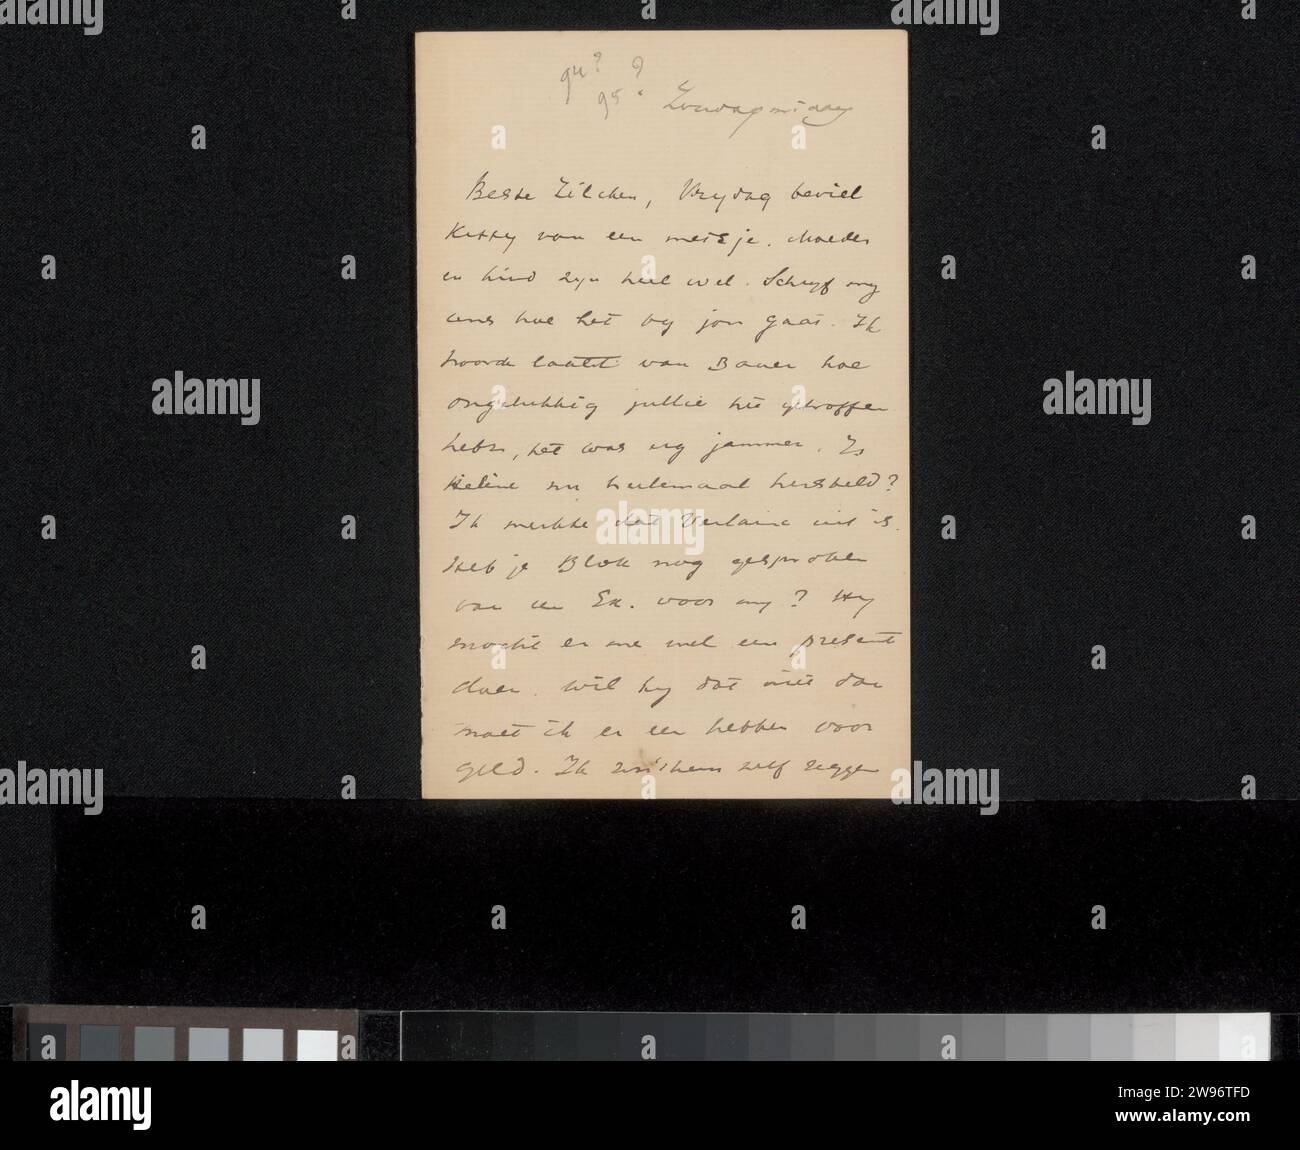 94?
95?
Zondagmiddag
Beste Zilcken, Vrydag beviel
Ketty van een meisje. Moeder
en kind zyn heel wel. Schryf my
eens hoe het by jou gaat. Ik
hoorde laatst van Bauer hoe
ongelukkig jullie het getroffen
hebt, het was erg jammer. Is
Hélène nu heelemaal hersteld?
Ik merkte dat Verlaine uit is.
Heb je Blok nog gesproken
van een Ex. voor my? Hy
mocht er me wel een present
doen. wil hy dat niet dan
moet ik er een hebben voor
geld. Ik zelf zeggen
alamy
Image ID: 2W96TFD
www.alamy.com